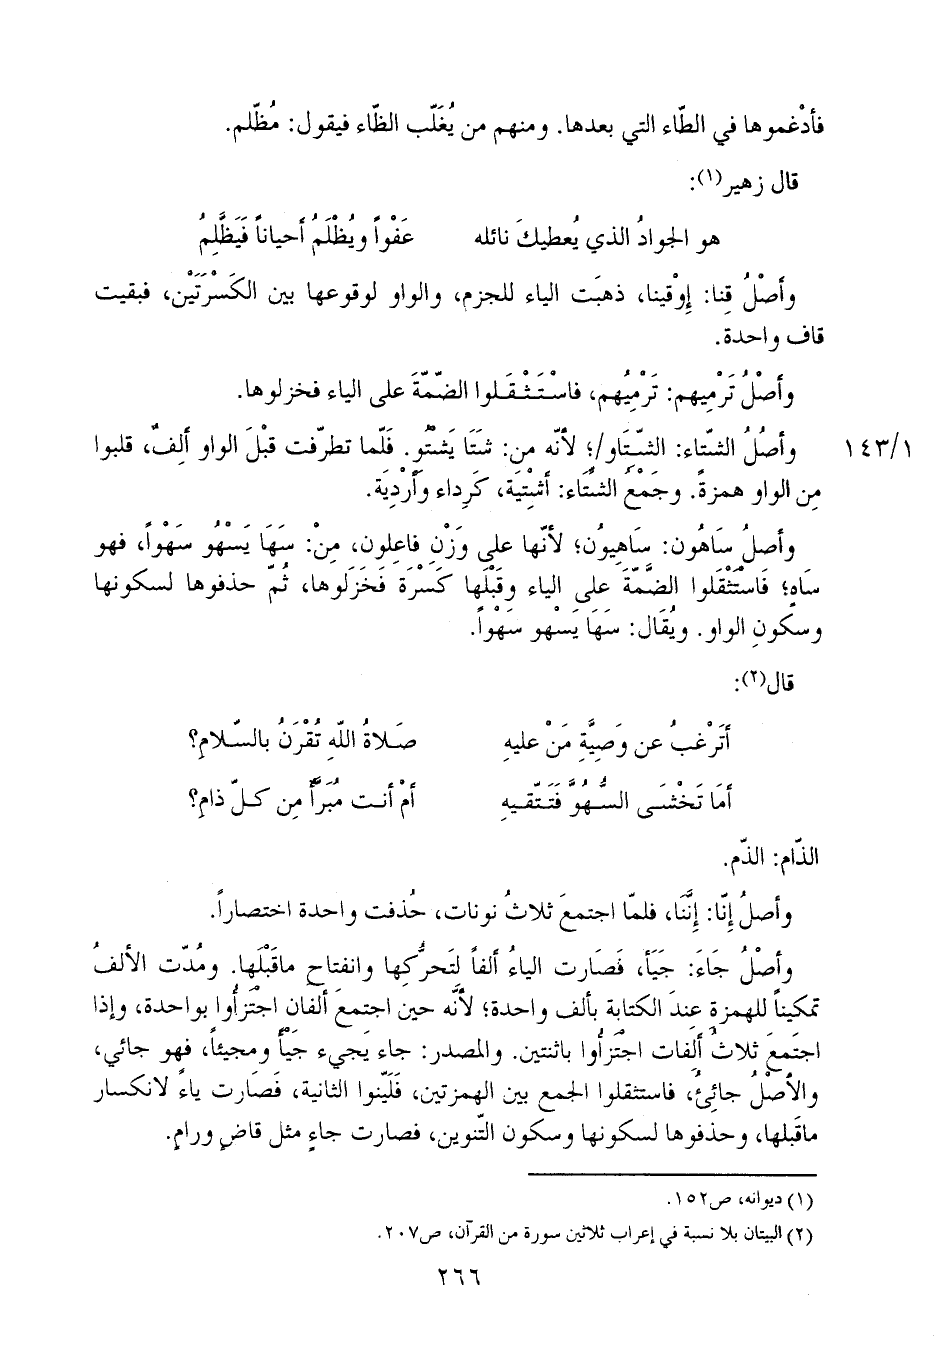 فأدْغموها في الطّاء التي بعدها. ومنهم من يُغَلّب الظّاء فيقول: مُظّلم.
قال زهير(١):
هو الجوادُ الذي يُعطيكَ نائله عَفْواً ويُظْلَمُ أحياناً فَيَظَّلِمُ
وأصْلُ قِنا: إوْقينا، ذهبَت الياء للجزم، والواو لوقوعها بين الكَسْرَتَيْن، فبقيت
قاف واحدة.
وأصْلُ تَرْمِيهم: تَرْمِيُهم، فاسْتَثْقَلوا الضّمّةَ على الياء فخزلوها.
١٤٣/١ وأصُلُ الشّتاء: الشّتَاو/؛ لأنّه من: شَتَا يَشْتُو. فَلّما تطرّفت قبْلَ الواو ألفٌ، قلبوا
مِن الواو همزةً. وجَمْعُ الشتَاء: أشْتِيَة، كَرِداء وأَرْدِيَة.
وأصلُ سَاهُون: سَاهِيوُن؛ لأنّها على وَزْنِ فاعِلون، مِنْ: سَهَا يَسْهُو سَهْواً، فهو
سَاهٍ؛ فَاسْتَثْقَلوا الضَّمّةَ على الياء وقَبْلَها كَسْرَة فَخَزَلوها، ثُمّ حذفوها لسكونها
وسكونِ الواو. ويُقَال: سَهَا يَسْهو سَهْواً.
قال(٢):
أَتَرْغبُ عن وَصِيَّةِ مَنْ عليهِ صَلاةُ اللّهِ تُقْرَنُ بالسّلامِ؟
أمَا تَخْشَى السُّهُوَّ فَتَتّقيهِ أمْ أنت مُبَرَّأ مِن كلّ ذامِ؟
الذّام: الذّم.
وأصلُ إنّا: إنَّنَا، فلمّا اجتمعَ ثلاثُ نونات، حُذفت واحدة اختصاراً.
وأصْلُ جَاءَ: جَيَأ، فَصَارت الياءُ ألفاً لِتَحرُّكها وانفتاح ماقَبْلَها. ومُدّت الألفُ
تمكيناً للهمزةِ عِندَ الكتابة بألف واحدة؛ لأنَّه حين اجتمعَ ألفان اجتْزأُوا بواحدة، وإذا
اجتَمعَ ثلاثُ ألفات اجتْزأُوا باثنتين. والمصدر: جاء يَجيء جَيْأً ومجيئاً، فهو جائي،
والأصْلُ جائِئُ، فاستثقلوا الجمع بين الهمزتين، فَلَيّنوا الثانية، فَصَارت ياءً لانكسار
ماقَبلها، وحذفوها لسكونها وسكون التّنوين، فصارت جاءٍ مثل قاضٍ ورامٍ.
(١) ديوانه، ص١٥٢.
(٢) البيتان بلا نسبة في إعراب ثلاثين سورة من القرآن، ص٢٠٧.
٢٦٦